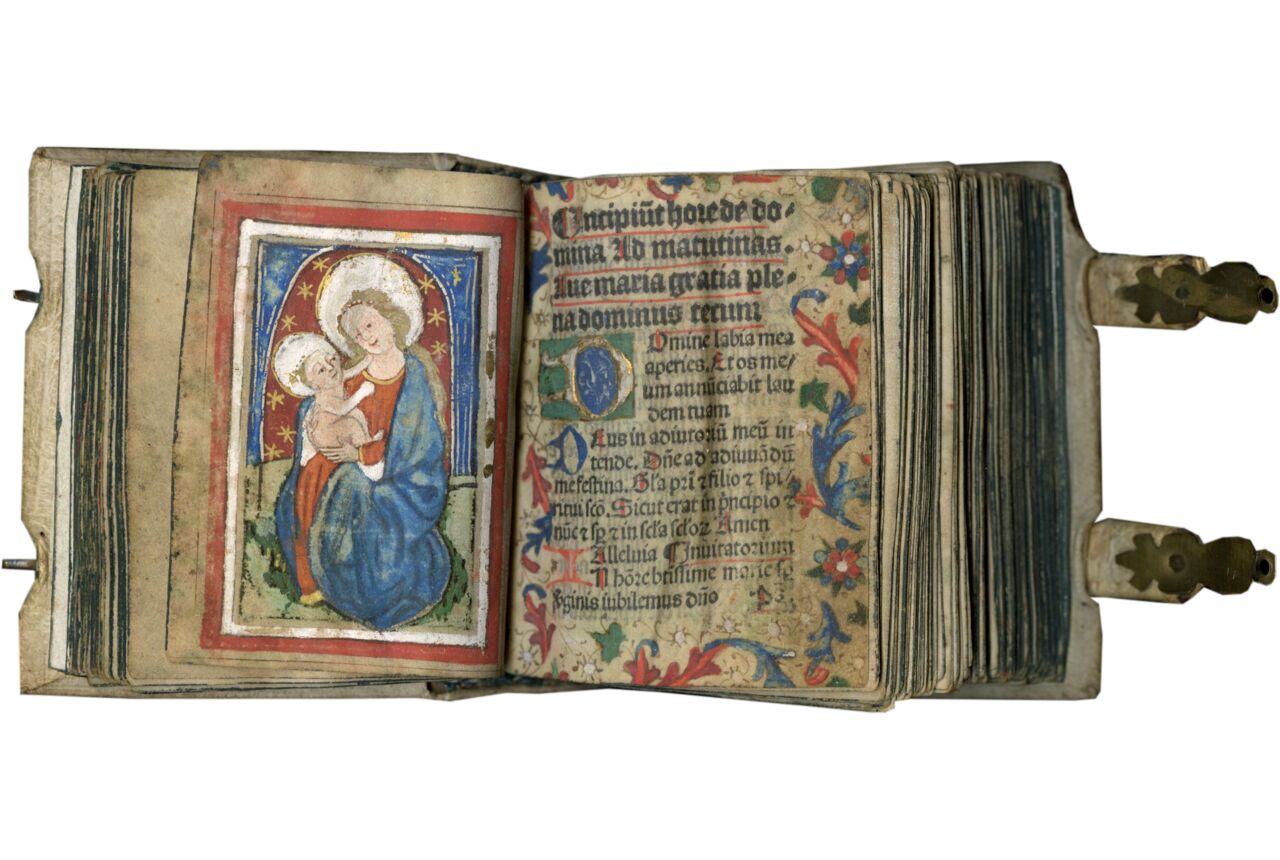 Incipiũt hore de do⸗
mina Ad matutinas.
Aue maria gratia ple⸗
na dominus tecum
Domine labia mea
aperies. Et os me⸗
um annũciabit lau
dem tuam
Deus in adiutoriũ meũ in
tende. Dñe ad adiuuãdũ
me festina. Gĺa pr̃i ⁊ filio ⁊ spi
ritui scõ. Sicut erat in p̃ncipio ⁊
nũc ⁊ sp̱ ⁊ in scĺa scĺoꝝ Amen
Alleluia Inuitatorium
In hõre btissime marie
ꝟginis iubilemus dño